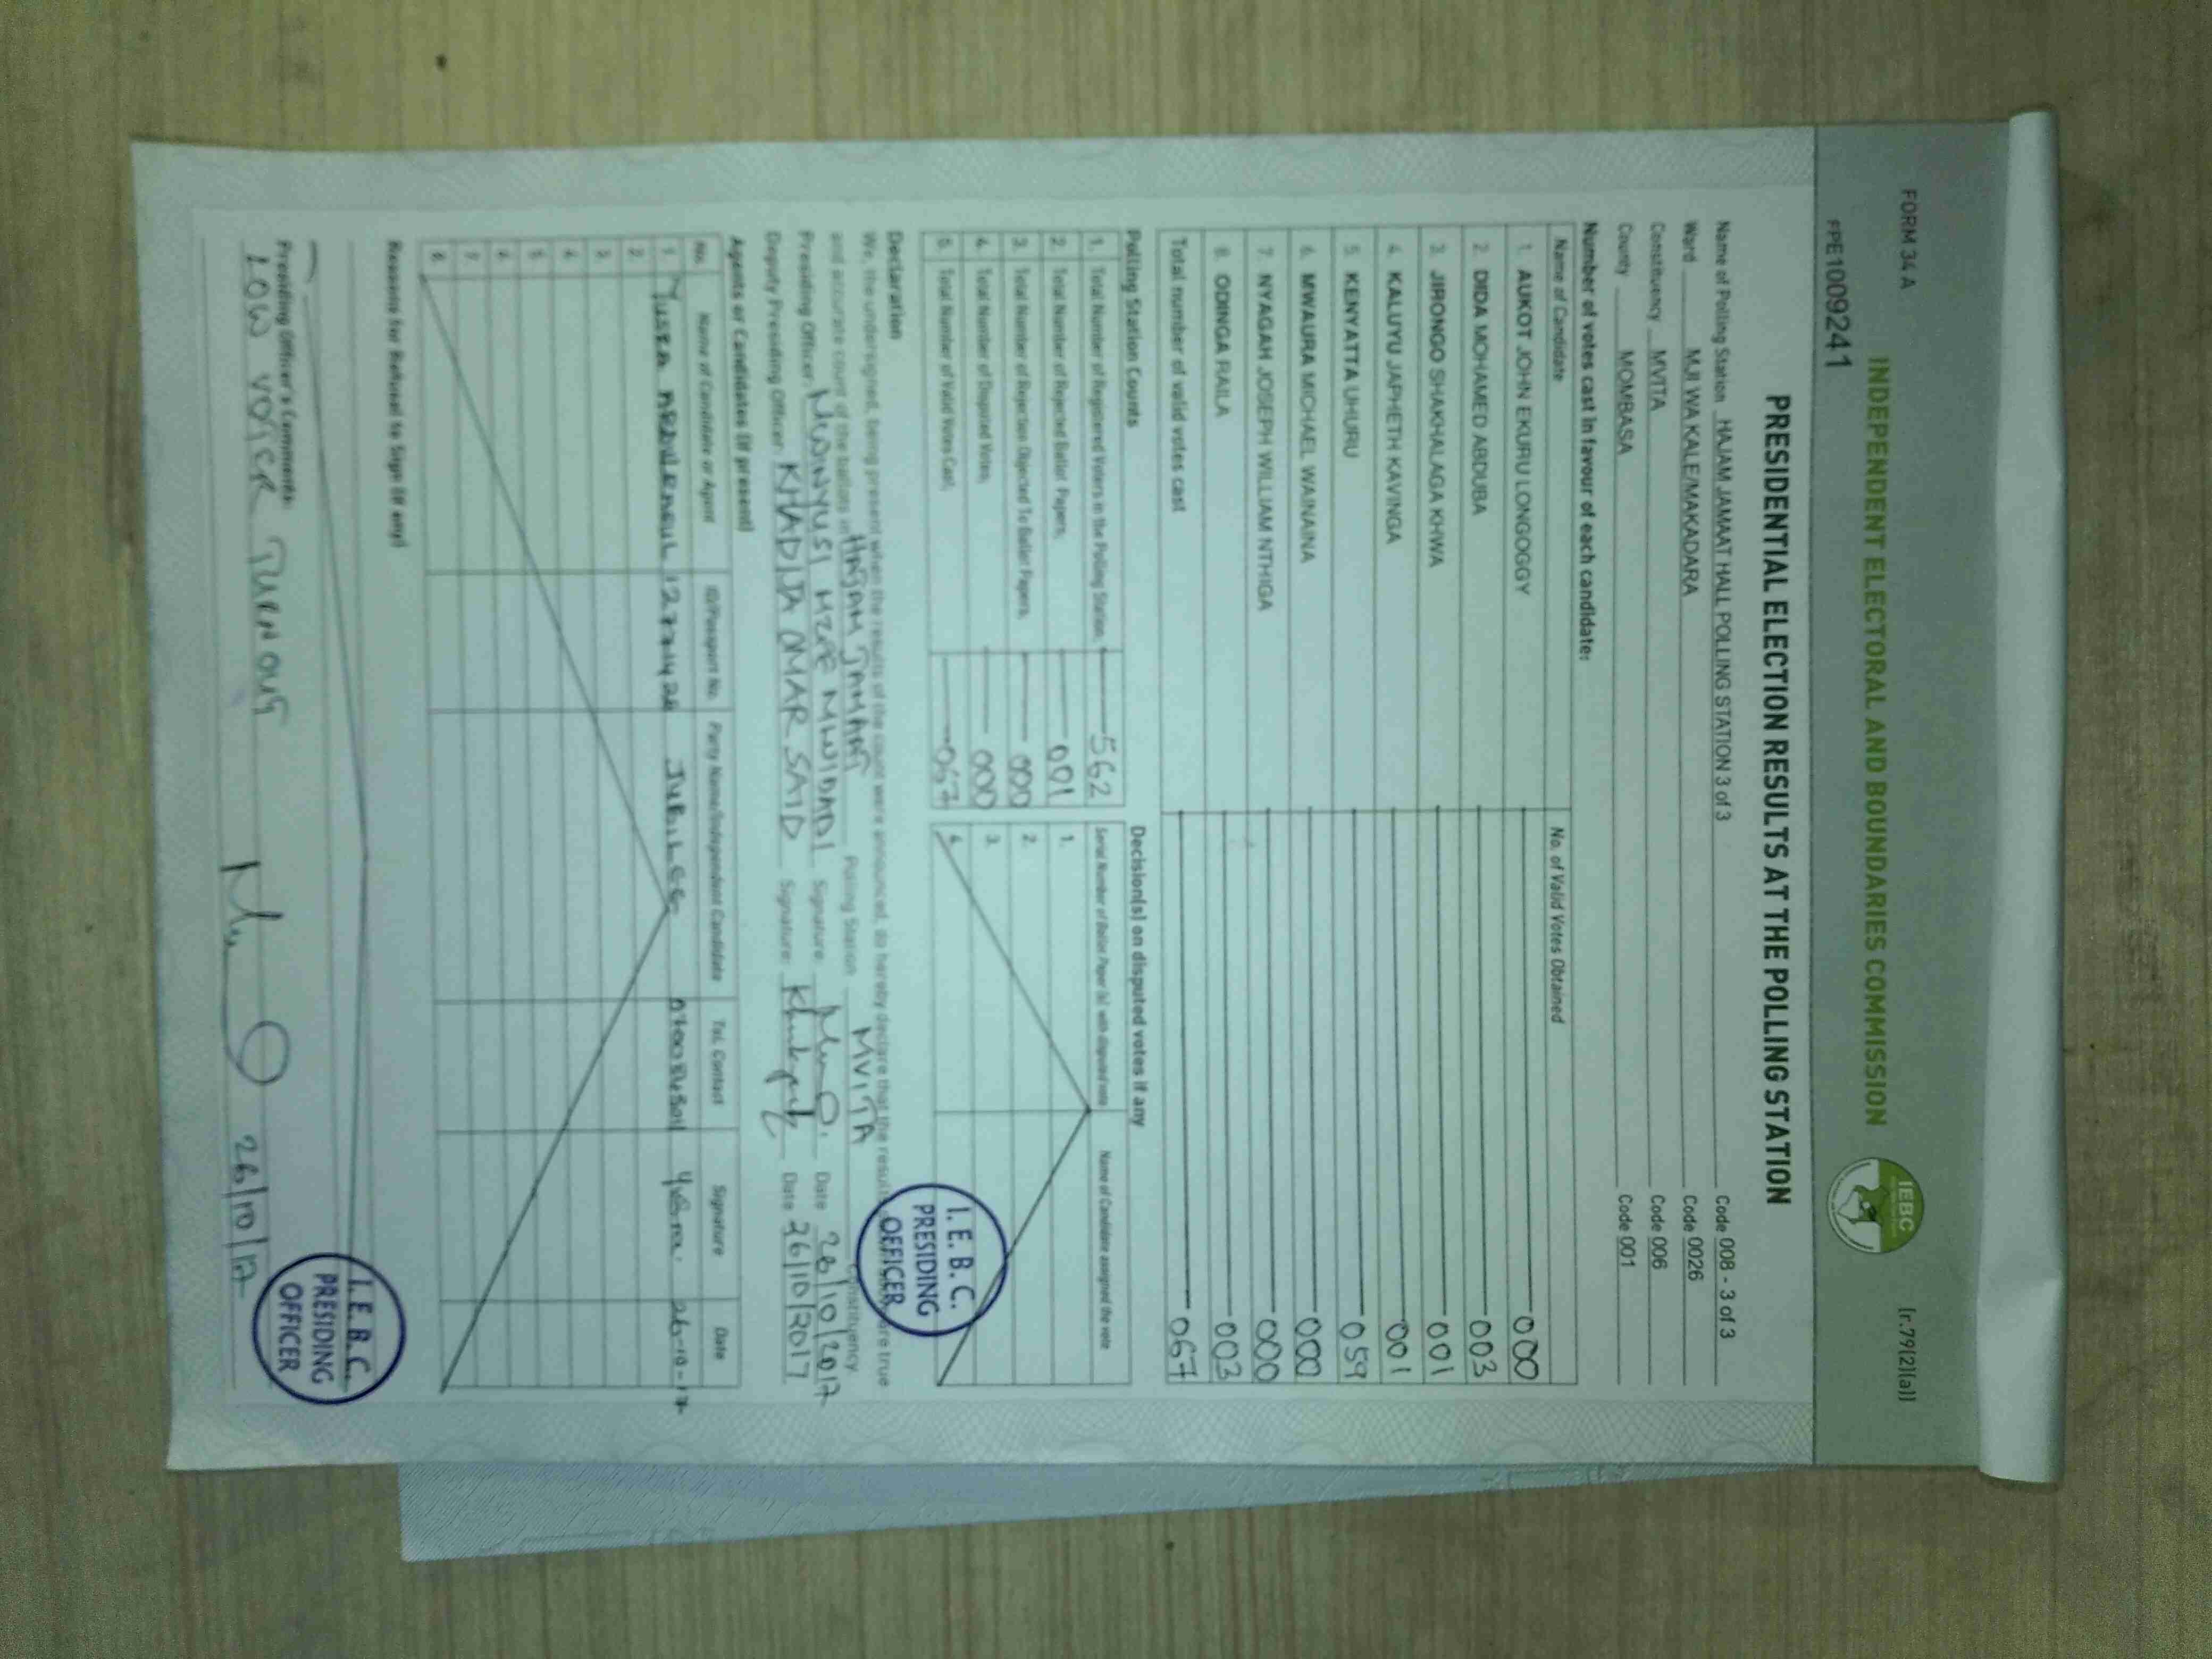 FORM 34 A
(r.79(2)(a))
INDEPENDENT ELECTORAL AND BOUNDARIES COMMISSION
IEBC
FPE1009241
PRESIDENTIAL ELECTION RESULTS AT THE POLLING STATION
Name of Polling Station HAJAM JAMAAT HALL POLLING STATION 3 of 3 Code 008 - 3 of 3
Ward MJI WA KALE/MAKADARA Code 0026
Constituency MVITA Code 006
County MOMBASA Code 001
Number of votes cast in favour of each candidate:
Name of Candidate No. of Valid Votes Obtained
1. AUKOT JOHN EKURU LONGOGGY 000
2. DIDA MOHAMED ABDUBA 003
3. JIRONGO SHAKHALAGA KHWA 001
4. KALUYU JAPHETH KAVINGA 001
5. KENYATTA UHURU 059
6. MWAURA MICHAEL WAINAINA 000
7. NYAGAH JOSEPH WILLIAM NTHIGA 000
8. ODINGA RAILA 003
Total number of valid votes cast 067
Polling Station Counts
1. Total Number of Registered Voters in the Polling Station; 562
2. Total Number of Rejected Ballot Papers; 001
3. Total Number of Rejection Objected To Ballot Papers; 000
4. Total Number of Disputed Votes; 000
5. Total Number of Valid Votes Cast; 067
Decision(s) on disputed votes if any
Serial Number of Ballot Paper (s) with disputed vote Name of Candidate assigned the vote
1.
2.
3.
4.
Declaration
We, the undersigned, being present when the results of the count were announced, do hereby declare that the results are true
and accurate count of the ballots in HAJAM JAMAAT Polling Station MVITA Constituency
Presiding Officer: MWANYUSI MZEE MWIDADI Signature Date 26/10/2017
Deputy Presiding Officer: KHADIJA OMAR SAID Signature: Date 26/10/2017
I.E.B.C.
PRESIDING
OFFICER
Agents or Candidates (if present)
No. Name of Candidate or Agent ID/Passport No. Party Name/Independent Candidate Tel. Contact Signature Date
1 JUBILEE 26-10-17
2
3
4
5
6
7
8
Reasons for Refusal to Sign (if any)
Presiding Officer's Comments:
LOW VOTER TURN OUT 26/10/17
I.E.B.C.
PRESIDING
OFFICER